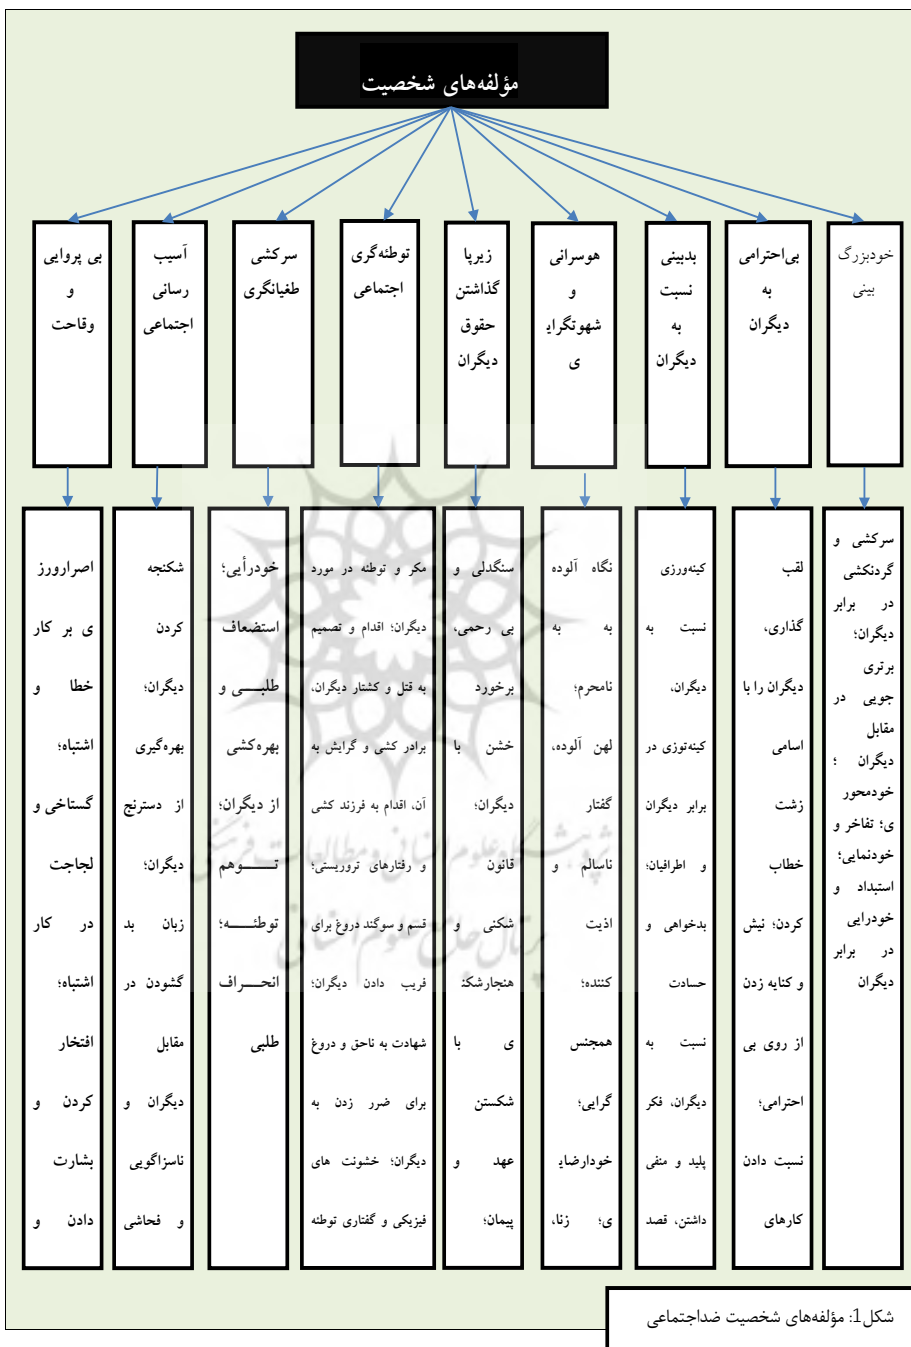 مؤلفه‌های شخصیت
خودبزرگ
بینی
بی‌احترامی
به
دیگران
بدبینی
نسبت
به
دیگران
هوسرانی
و
شهوتگرای
ی
زیرپا
گذاشتن
حقوق
دیگران
توطئه‌گری
اجتماعی
سرکشی
طغیانگری
آسیب
رسانی
اجتماعی
بی پروایی
و
وقاحت
سرکشی و
گردنکشی
در برابر
دیگران؛
برتری
جویی در
مقابل
دیگران ؛
خودمحور
ی؛ تفاخر و
خودنمایی؛
استبداد و
خودرایی
در برابر
دیگران
لقب
گذاری،
دیگران را با
اسامی
زشت
خطاب
کردن؛ نیش
و کنایه زدن
از روی بی
احترامی؛
نسبت دادن
کارهای
کینه‌ورزی
نسبت به
دیگران،
کینه‌توزی در
برابر دیگران
و اطرافیان؛
بدخواهی و
حسادت
نسبت به
دیگران، فکر
پلید و منفی
داشتن، قصد
نگاه آلوده
به به
نامحرم؛
لهن آلوده،
گفتار
ناسالم و
اذیت
کننده؛
همجنس
گرایی؛
خودارضای
ی؛ زنا،
سنگدلی و
بی رحمی،
برخورد
خشن با
دیگران؛
قانون
شکنی و
هنجارشکن
ی با
شکستن
عهد و
پیمان؛
مکر و توطئه در مورد
دیگران؛ اقدام و تصمیم
به قتل و کشتار دیگران،
برادر کشی و گرایش به
آن، اقدام به فرزند کشی
و رفتارهای تروریستی؛
قسم و سوگند دروغ برای
فریب دادن دیگران؛
شهادت به ناحق و دروغ
برای ضرر زدن به
دیگران؛ خشونت های
فیزیکی و گفتاری توطئه
خودرأیی؛
استضعاف
طلبی و
بهره‌کشی
از دیگران؛
توهم
توطئه؛
انحراف
طلبی
شکنجه
کردن
دیگران؛
بهره‌گیری
از دسترنج
دیگران؛
زبان بد
گشودن در
مقابل
دیگران و
ناسزاگویی
و فحاشی
اصرارورز
ی بر کار
خطا و
اشتباه؛
گستاخی و
لجاجت
در کار
اشتباه؛
افتخار
کردن و
بشارت
دادن و
پژوهشگاه علوم انسانی و مطالعات فرهنگی
پرتال جامع علوم انسانی
شکل1: مؤلفه‌های شخصیت ضداجتماعی